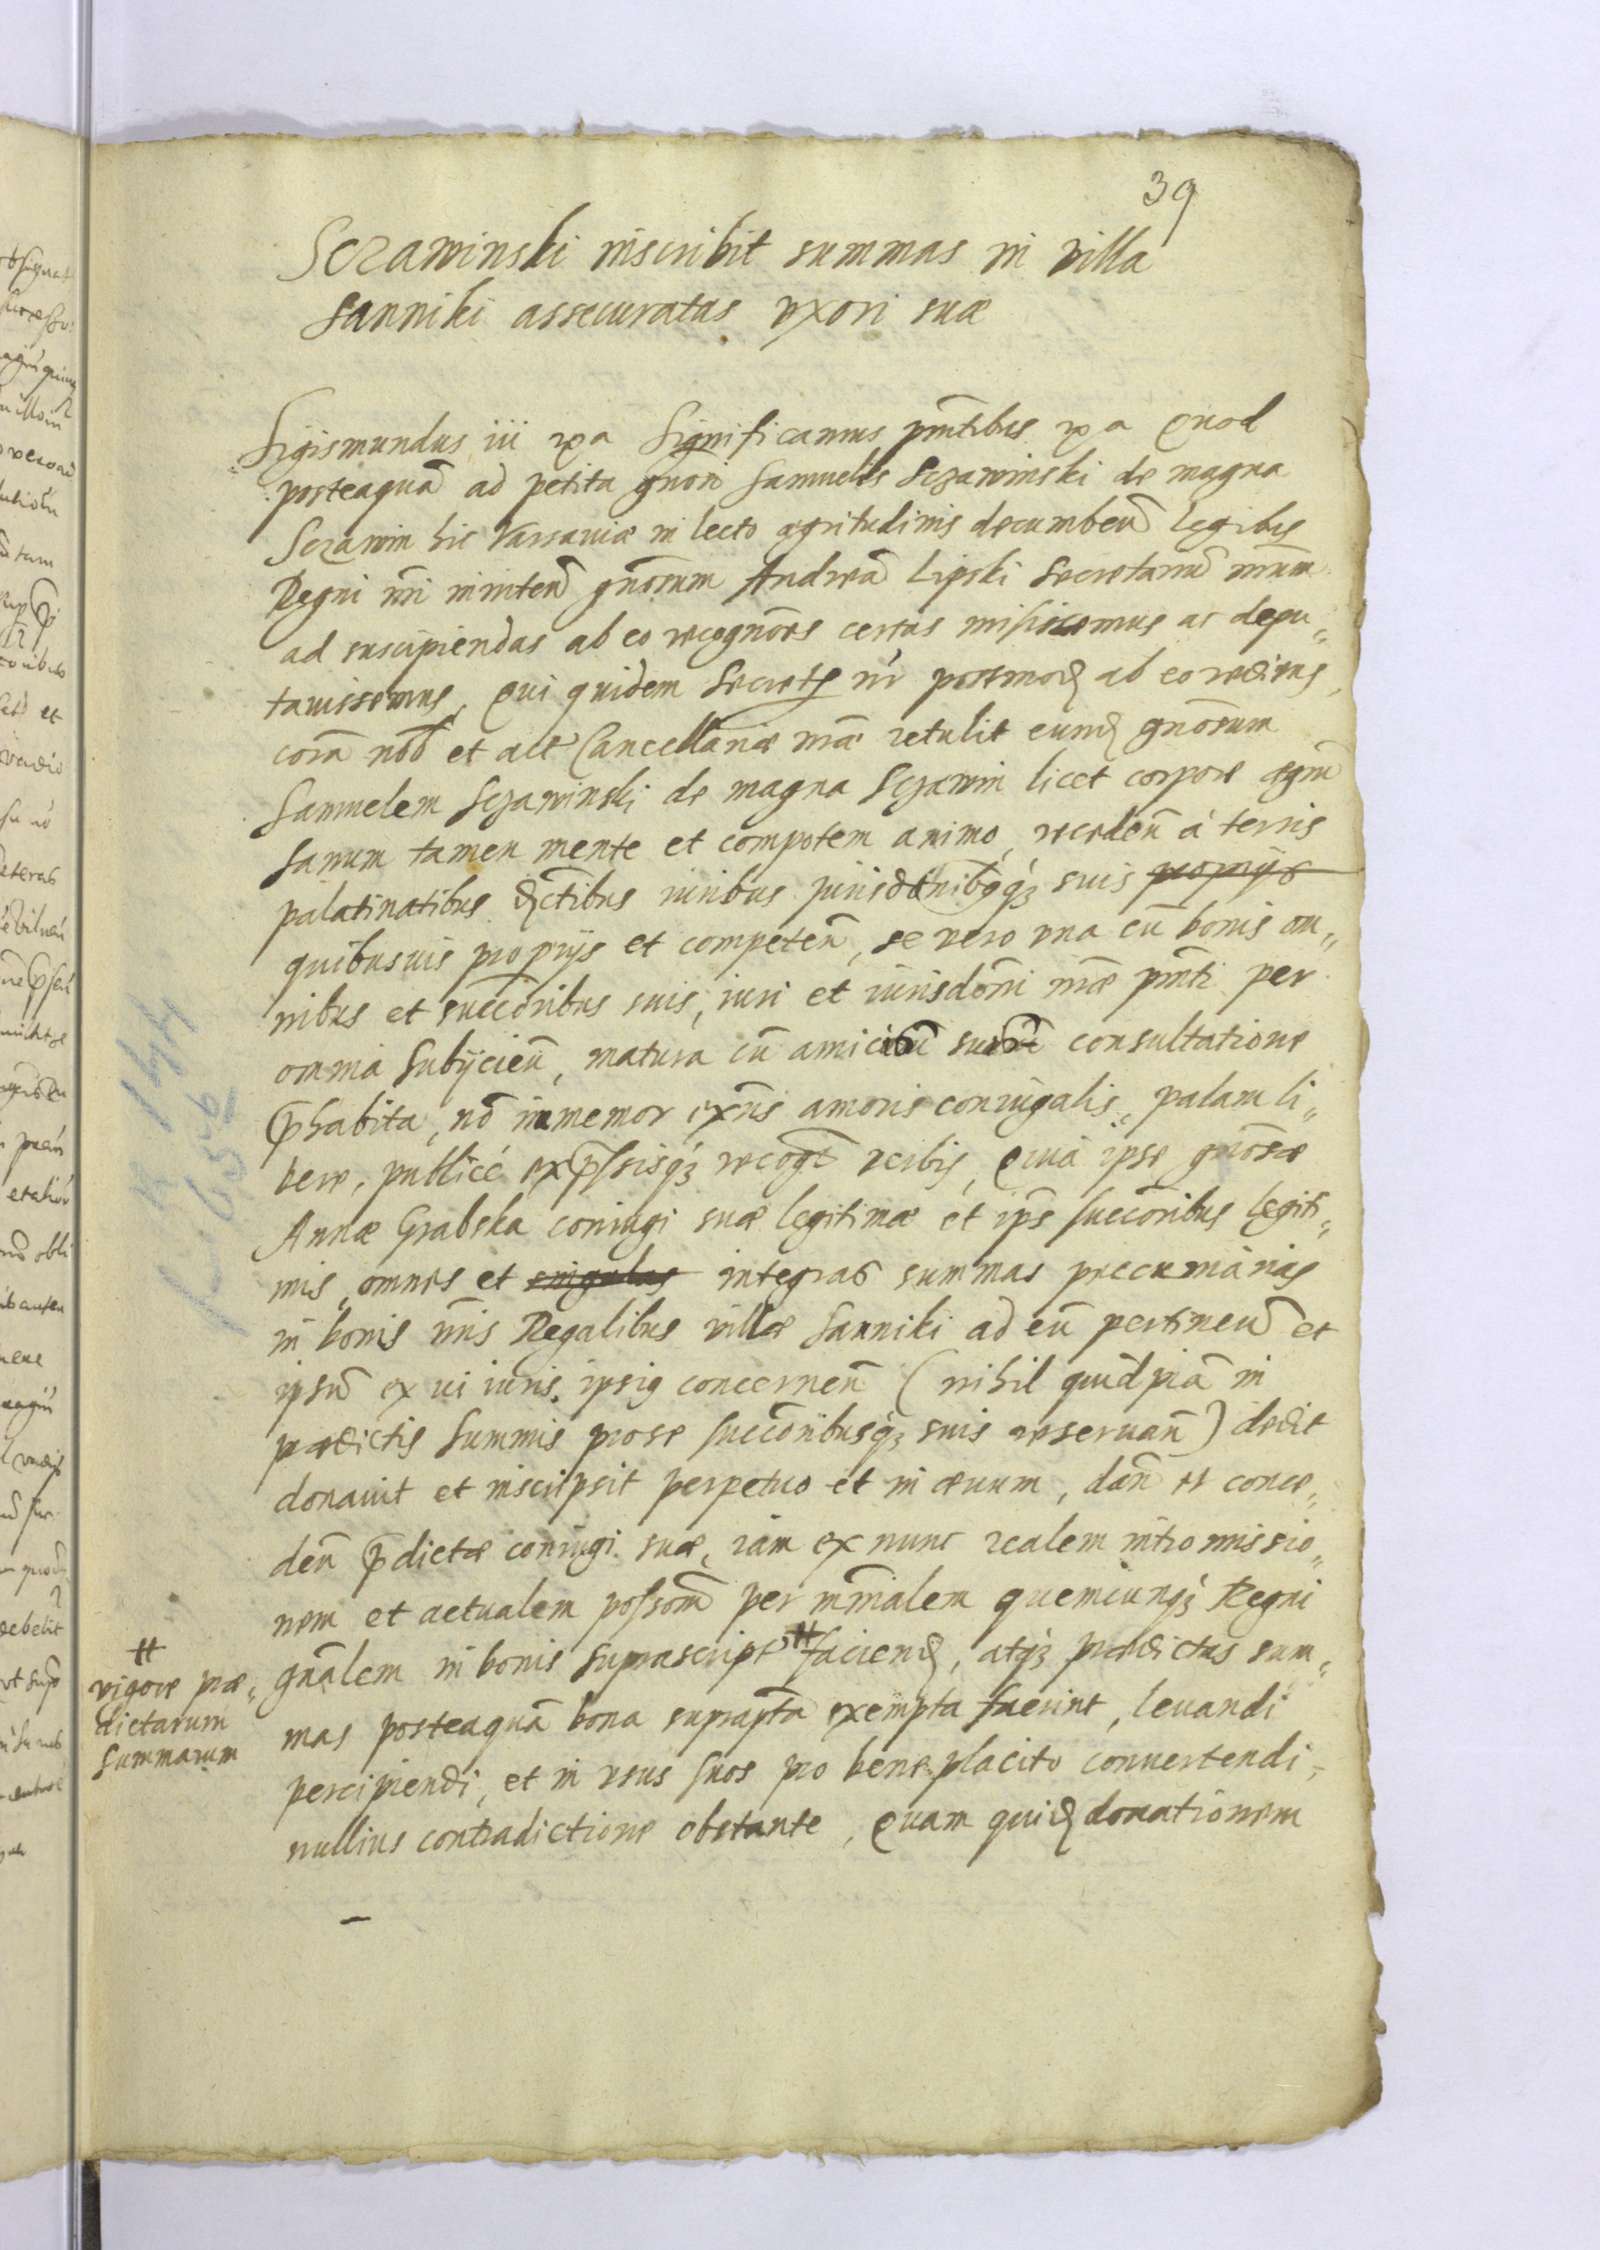 39
Sczawinski inscribit summas in villa
Sanniki assecuratas uxori suæ
Sigismundus iii Significamus pñtibus Quod
posteaquã ad petita gnõri Samuelis Sczawinski de magna
Sczawin hic Varsaviæ in lecto ægritudinis decumbeñ legibus
Regni nri inniteñ gnõrum Andreã Lipski Secretariũ nrũm
ad suscipiendas ab eo recognõnes certas misissemus ac depu„
tauissemus, Qui quidem nr postmod ab eo rediens,
corã nob et actʳ Cancellariæ nræ retulit eund gnõsum
Samuelem Sczawinski de magna Sczawin licet corpore ægrũ
sanum tamen mente et compotem animo, recedeñ à terris
palatinatibus dctibus iuribus jurisdõnibusq́ʒ suis proprijs
quibusuis proprijs et competeñ, se vero vna cũ bonis om„
nibus et succõribus suis, iuri et iurisdõni nræ pñti per
omnia Subijcieñ, matura cũ amicorũ suorũ consultatione
p̃habita, nõ immemor exñs amoris coniugalis, palam li„
bere, publicé exp̃ssisq́ʒ recogt verbis, Quia ipse gnõsæ
Annæ Grabska coniugi suæ legitimæ et ips succõribus legiti„
mis, omnes et singulas integras summas peccuniarias
in bonis nris Regalibus villæ Sanniki ad eũ pertineñ et
ipsũ ex vi iuris ipsiʒ concerneñ ( nihil quidpiã in
prædictis Summis prose succõribusq́ʒ suis reseruañ ) dedit
donauit et inscripsit perpetuo et in æuum, dañ et conce„
deñ p̃dictæ coniugi suæ, iam ex nunc realem intromissio„
nem et actualem possoñ per mrĩalem quemcunq́ʒ Regni
gnãlem in bonis suprascript ⌗ faciend, atq́ʒ prædictas sum„
mas posteaquã bona suprapta exempta fuerint, leuandi
percipiendi, et in vsus suos pro bene placito conuertendi,
nullius contradictione obstante, Quam quid donationem
⌗
vigore præ„
dictarum
Summarum